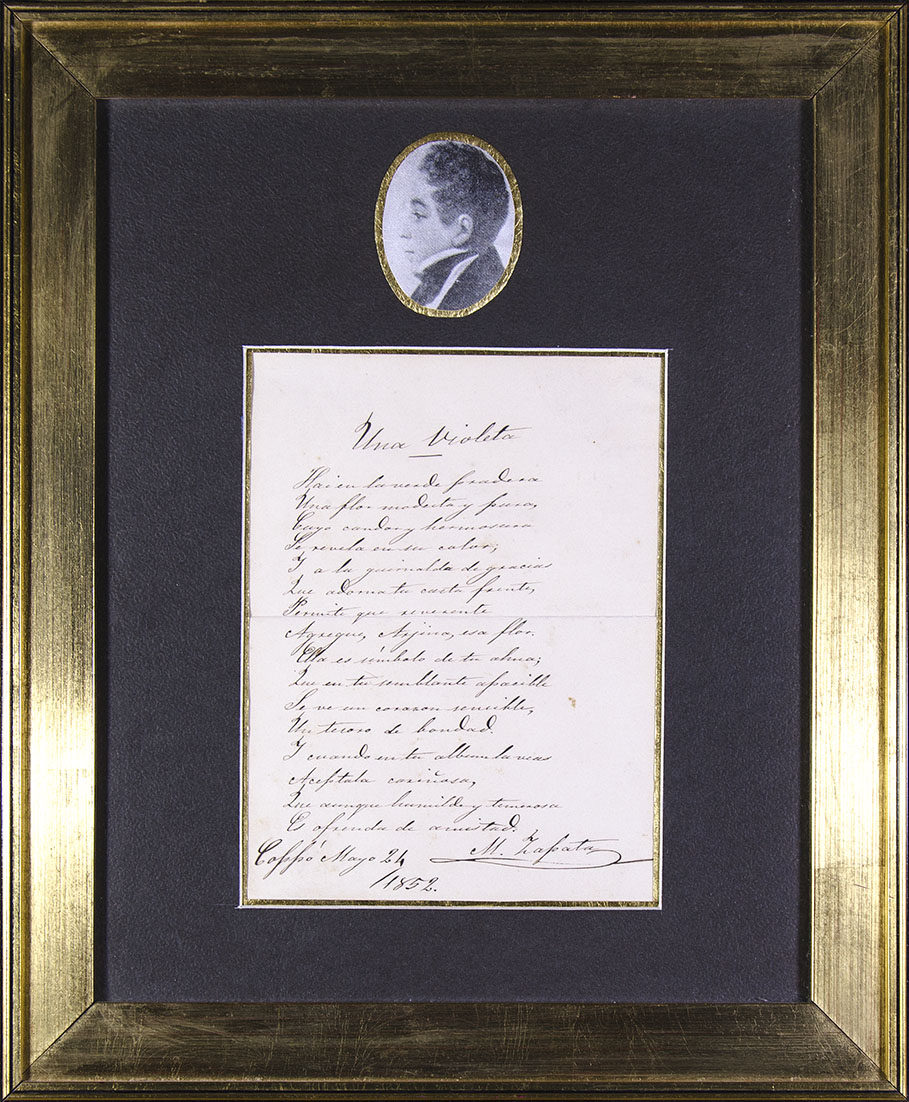 Una Violeta
Hai en la verde pradera
Una flor modesta y pura,
Cuyo candor y hermosura
Se revela en su color;
I a la guirnalda de gracias
Que adorna tu casta frente,
Permite que reverente
Agregue, Arjina, esa flor.
Ella es símbolo de tu alma;
Que en tu semblante apacible
Se ve un corazon sencible,
Un tesoro de bondad.
I cuando en tu album la veas
Aceptala cariñosa,
Que aunque humilde y temerosa
Es ofrenda de amistad.
M. Zapata
Mayo 24
1852.